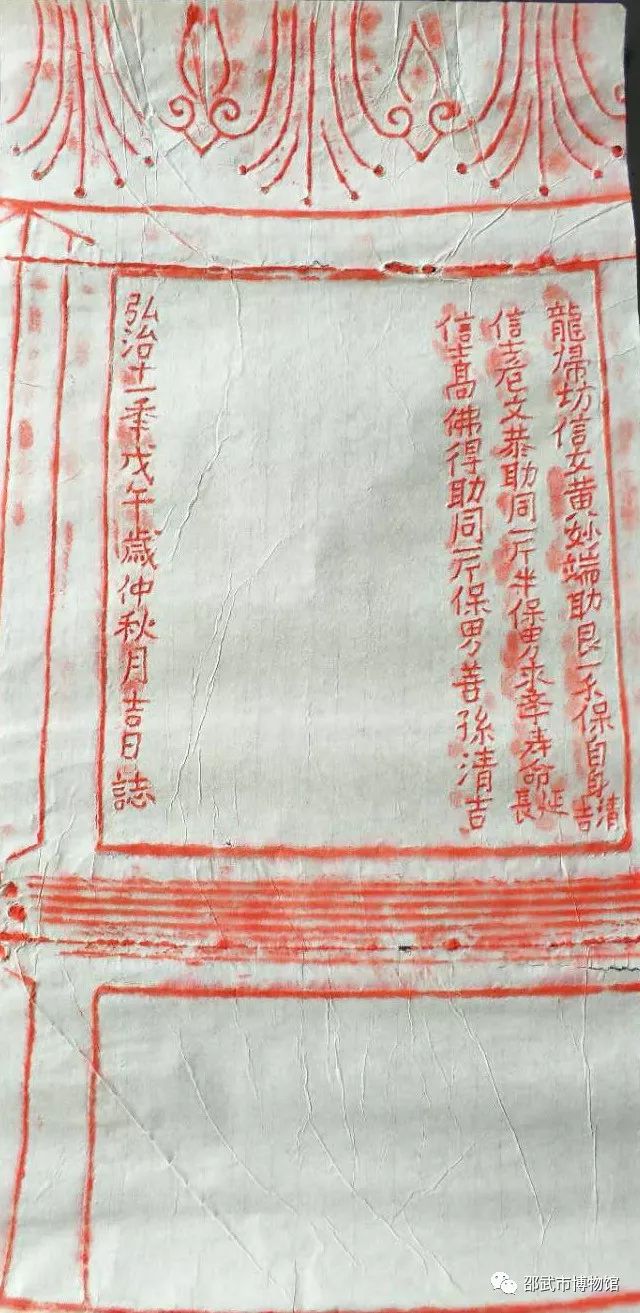 龍歸坊信女黄妙端助艮一千保自身清吉
信士危文恭助同一斤半保男求孝寿命延長
信士髙佛得助同一斤保男善孫清吉
弘治十一季戊午歳仲秋月吉日誌
邵武市博物馆